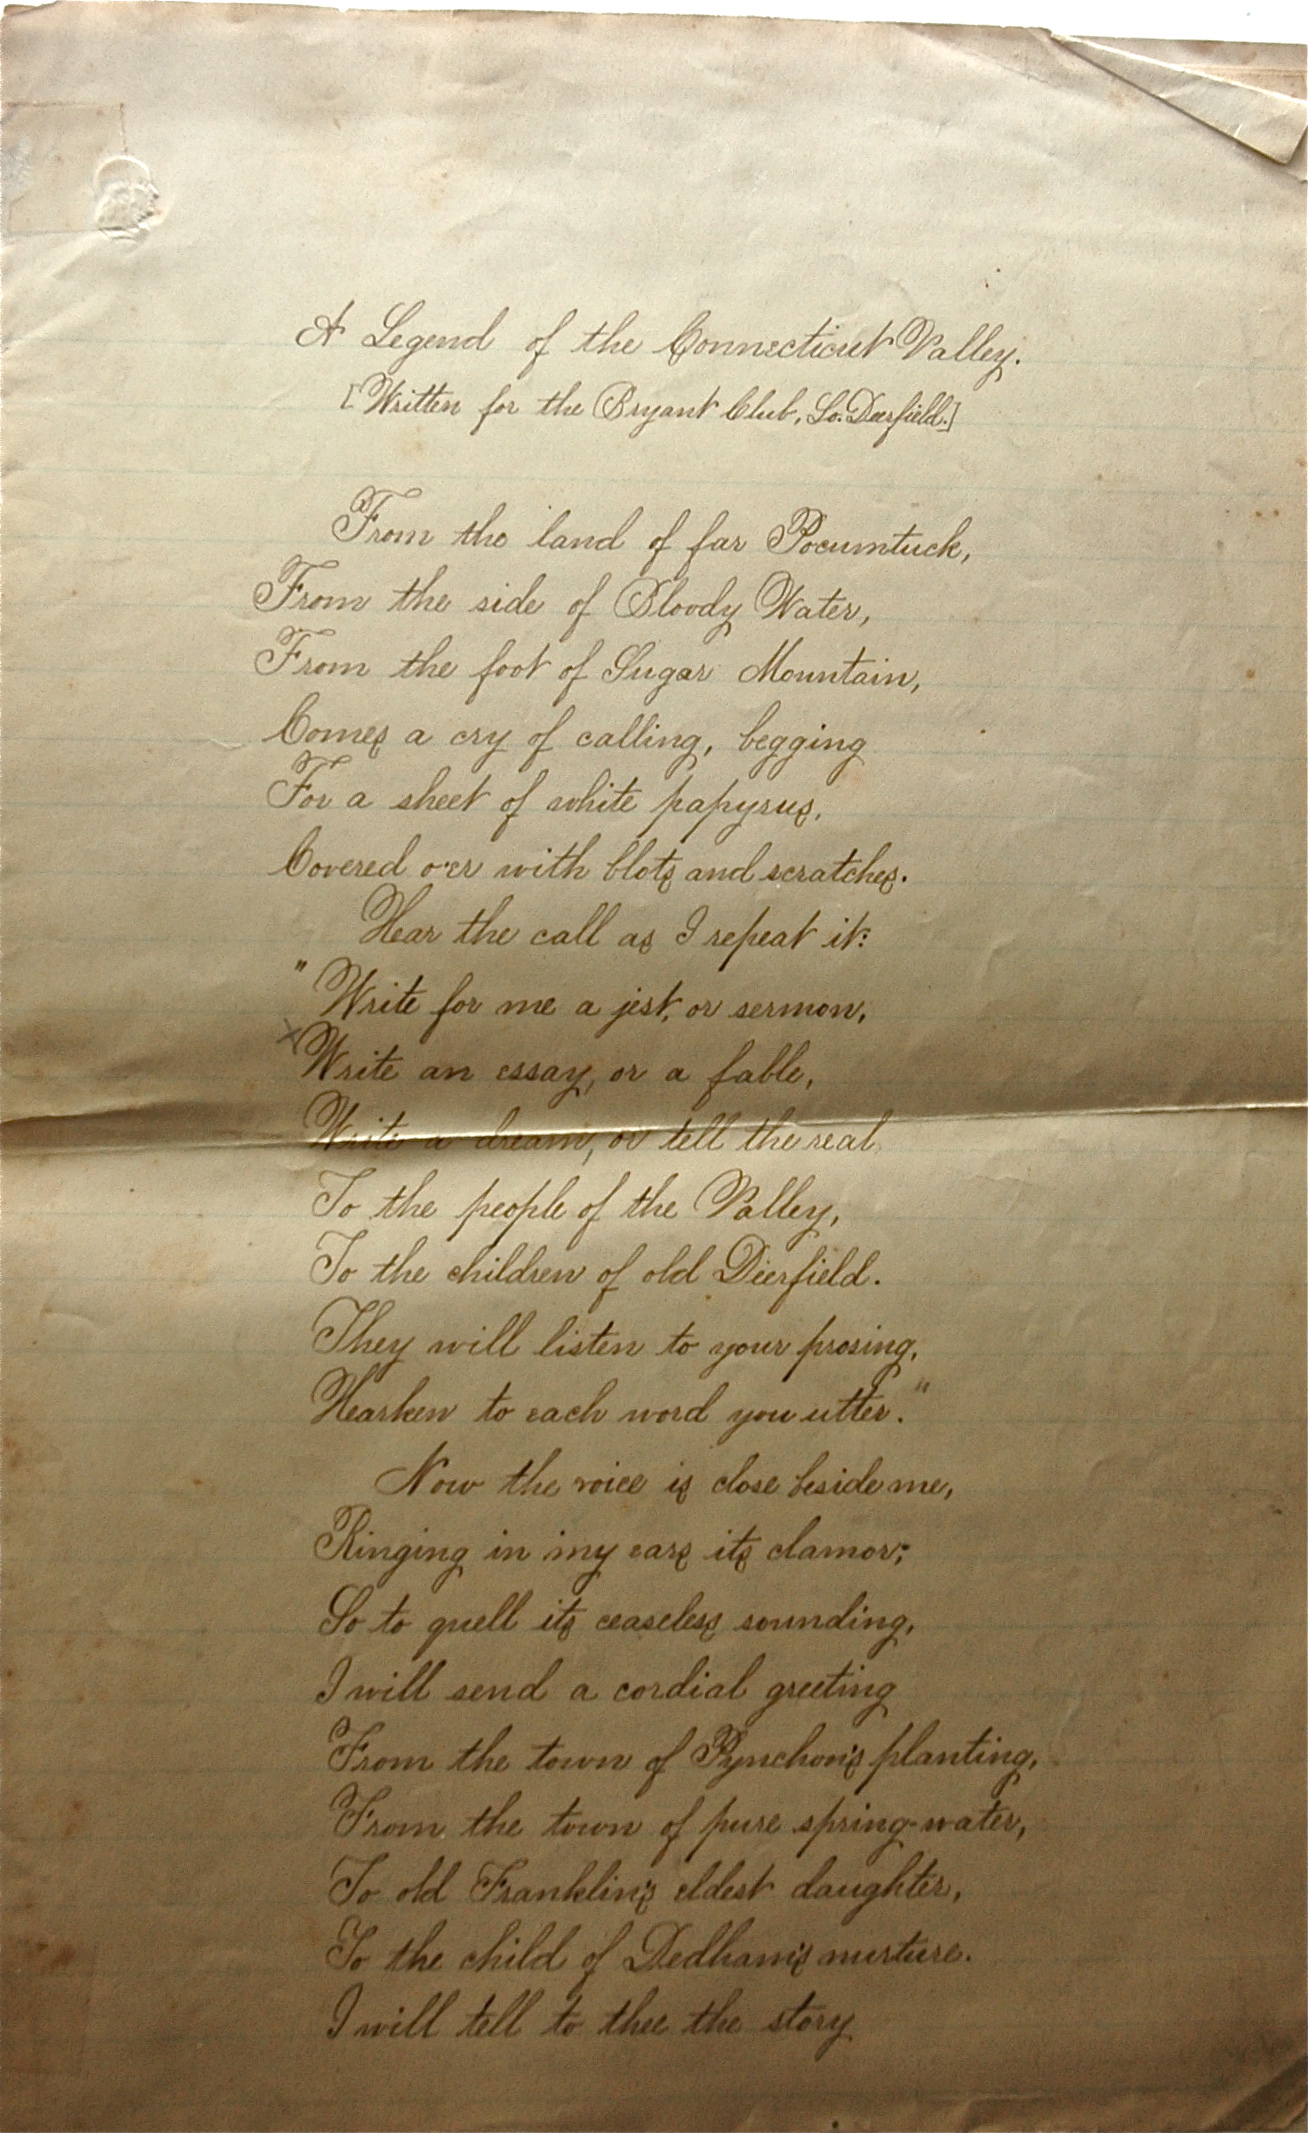 A Legend of the Connecticut Valley.
[Written for the Bryant Club, So. Deerfield.]
From the land of far Pocumtuck,
From the side of Bloody Water,
From the foot of Sugar Mountain,
Comes a cry of calling, begging
For a sheet of white papyrus,
Covered o'er with blots and scratches.
Hear the call as I repeat it:
"Write for me a jest, or sermon,
x Write an essay, or a fable,
Write a dream, or tell the real
To the people of the Valley,
To the children of old Deerfield.
They will listen to your prosing,
Hearken to each word you utter."
Now the voice is close beside me,
Ringing in my ears its clamor;
So to quell its ceaseless sounding,
I will send a cordial greeting
From the town of Pynchon's planting,
From the town of pure spring-water,
To old Franklin's eldest daughter,
To the child of Dedham's nurture.
I will tell to thee the story